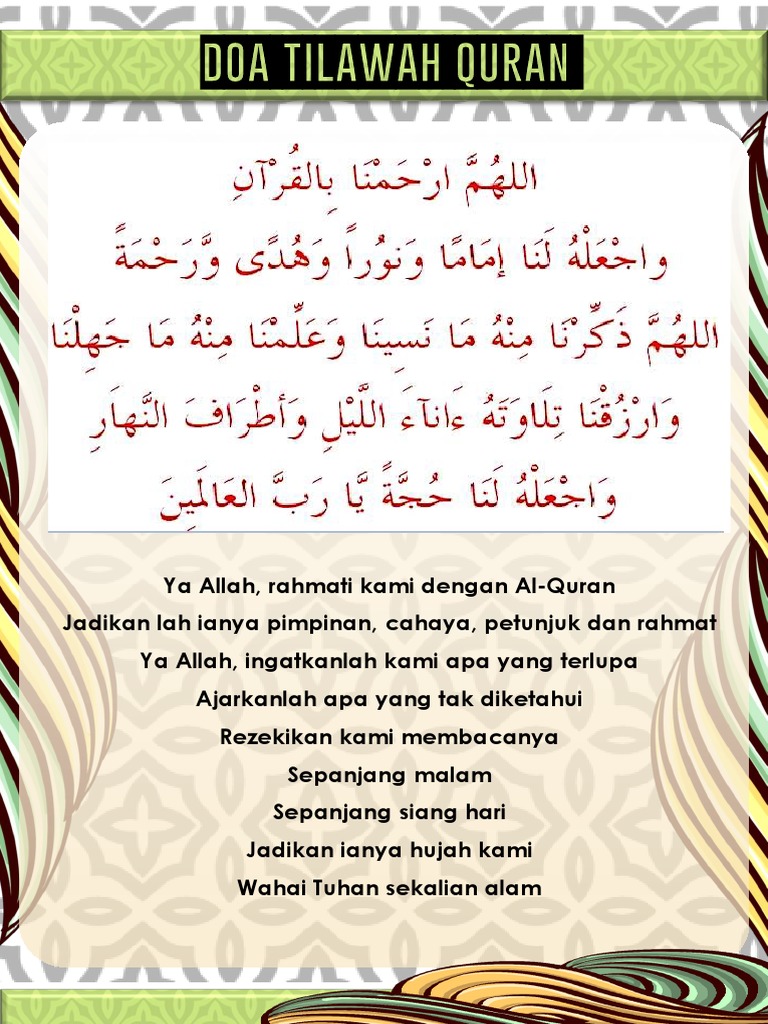 DOA TILAWAH QURAN
اللهُمَّ ارْحَمْنَا بِالقُرْآنِ
واجْعَلْهُ لَنَا إمَامًا وَنوُراً وَهُدًى وَّرَحْمَةً
اللهُمَّ ذَكِّرْنَا مِنْهُ مَا نَسِينَا وَعَلِّمْنَا مِنْهُ مَا جَهِلْنَا
وَارْزُقْنَا تِلَاوَتَهُ ءَانآءَ اللَّيْلِ وَأطْرَافَ النَّهاَرِ
وَاجْعَلْهُ لَنَا حُجَّةً يَّا رَبَّ العَالَمِينَ
Ya Allah, rahmati kami dengan Al-Quran
Jadikan lah ianya pimpinan, cahaya, petunjuk dan rahmat
Ya Allah, ingatkanlah kami apa yang terlupa
Ajarkanlah apa yang tak diketahui
Rezekikan kami membacanya
Sepanjang malam
Sepanjang siang hari
Jadikan ianya hujah kami
Wahai Tuhan sekalian alam